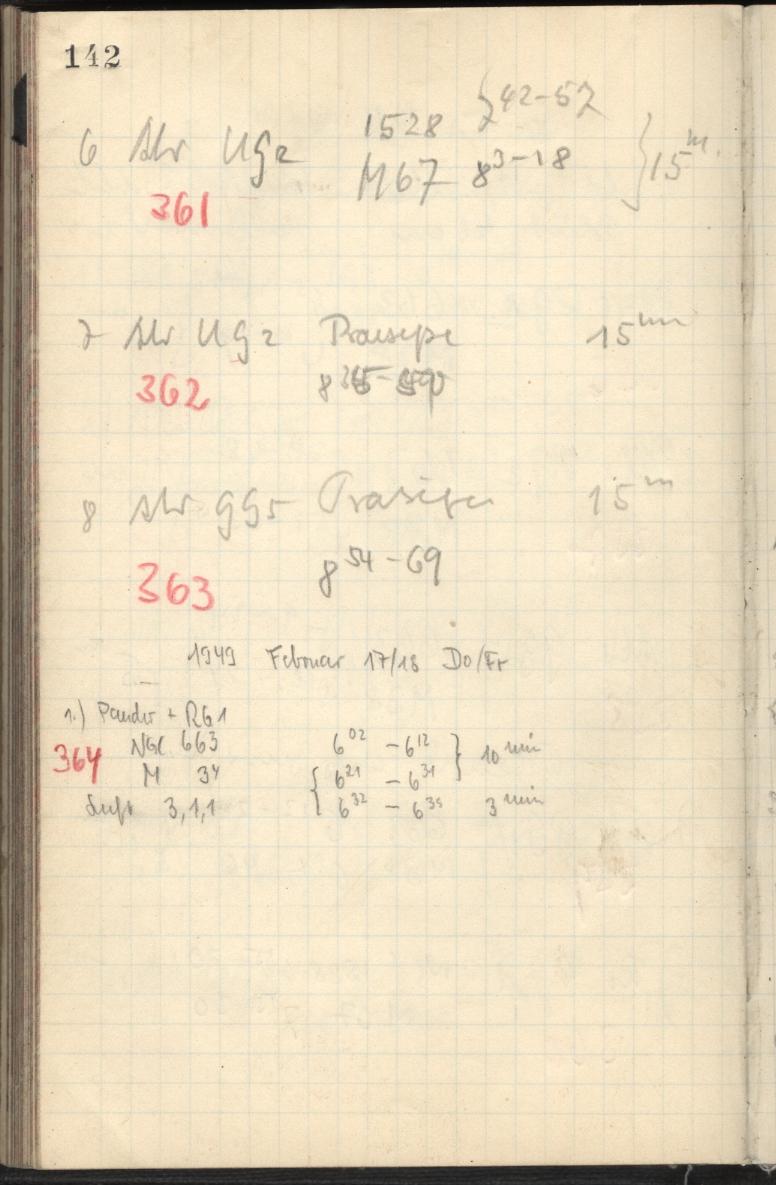 142
6 UG2 1528 7 42-57
M67 8 3-18 } 15 m.
361
7 UG2 Praesepe 15 m
362 8
8 GG5 Praesepe 15 m
363 8 54-69
1949 Februar 17/18 Do/Fr
1.) + RG1
364 NGC 663 6 02 - 6 12 } 10 min
M 34 { 6 21 - 6 31
Luft 3,1,1 6 32 - 6 35 3 min